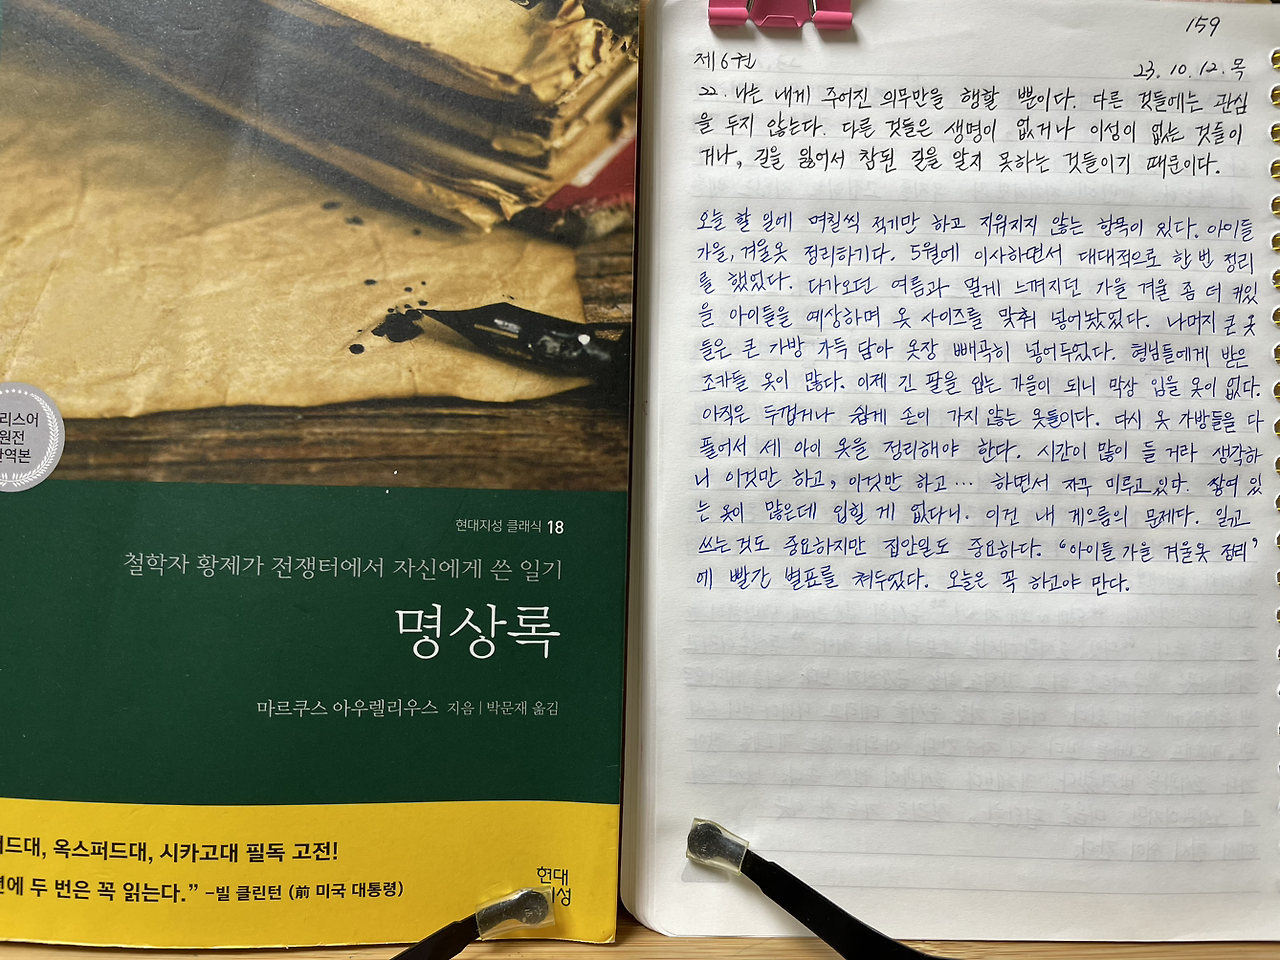 리스어
원전
역본
현대지성 클래식 18
철학자 황제가 전쟁터에서 자신에게 쓴 일기
명상록
마르쿠스 아우렐리우스 지음 | 박문재 옮김
드대, 옥스퍼드대, 시카고대 필독 고전!
에 두 번은 꼭 읽는다.” –빌 클린턴 (前 미국 대통령)
현대
지성
159
제6권
23. 10. 12. 목
22. 나는 내게 주어진 의무만을 행할 뿐이다. 다른 것들에는 관심
을 두지 않는다. 다른 것들은 생명이 없거나 이성이 없는 것들이
거나, 길을 잃어서 참된 길을 알지 못하는 것들이기 때문이다.
오늘 할 일에 며칠씩 적기만 하고 지워지지 않는 항목이 있다. 아이들
가을, 겨울옷 정리하기다. 5월에 이사하면서 대대적으로 한 번 정리
를 했었다. 다가오던 여름과 멀게 느껴지던 가을 겨울 좀 더 커있
을 아이들을 예상하며 옷 사이즈를 맞춰 넣어놨었다. 나머지 큰 옷
들은 큰 가방 가득 담아 옷장 빼곡히 넣어두었다. 형님들에게 받은
조카들 옷이 많다. 이제 긴 팔을 입는 가을이 되니 막상 입을 옷이 없다.
아직은 두껍거나 쉽게 손이 가지 않는 옷들이다. 다시 옷 가방들을 다
풀어서 세 아이 옷을 정리해야 한다. 시간이 많이 들 거라 생각하
니 이것만 하고, 이것만 하고… 하면서 자꾸 미루고 있다. 쌓여 있
는 옷이 많은데 입힐 게 없다니. 이건 내 게으름의 문제다. 읽고
쓰는 것도 중요하지만 집안일도 중요하다. “아이들 가을 겨울옷 정리”
에 빨간 별표를 쳐두었다. 오늘은 꼭 하고야 만다.